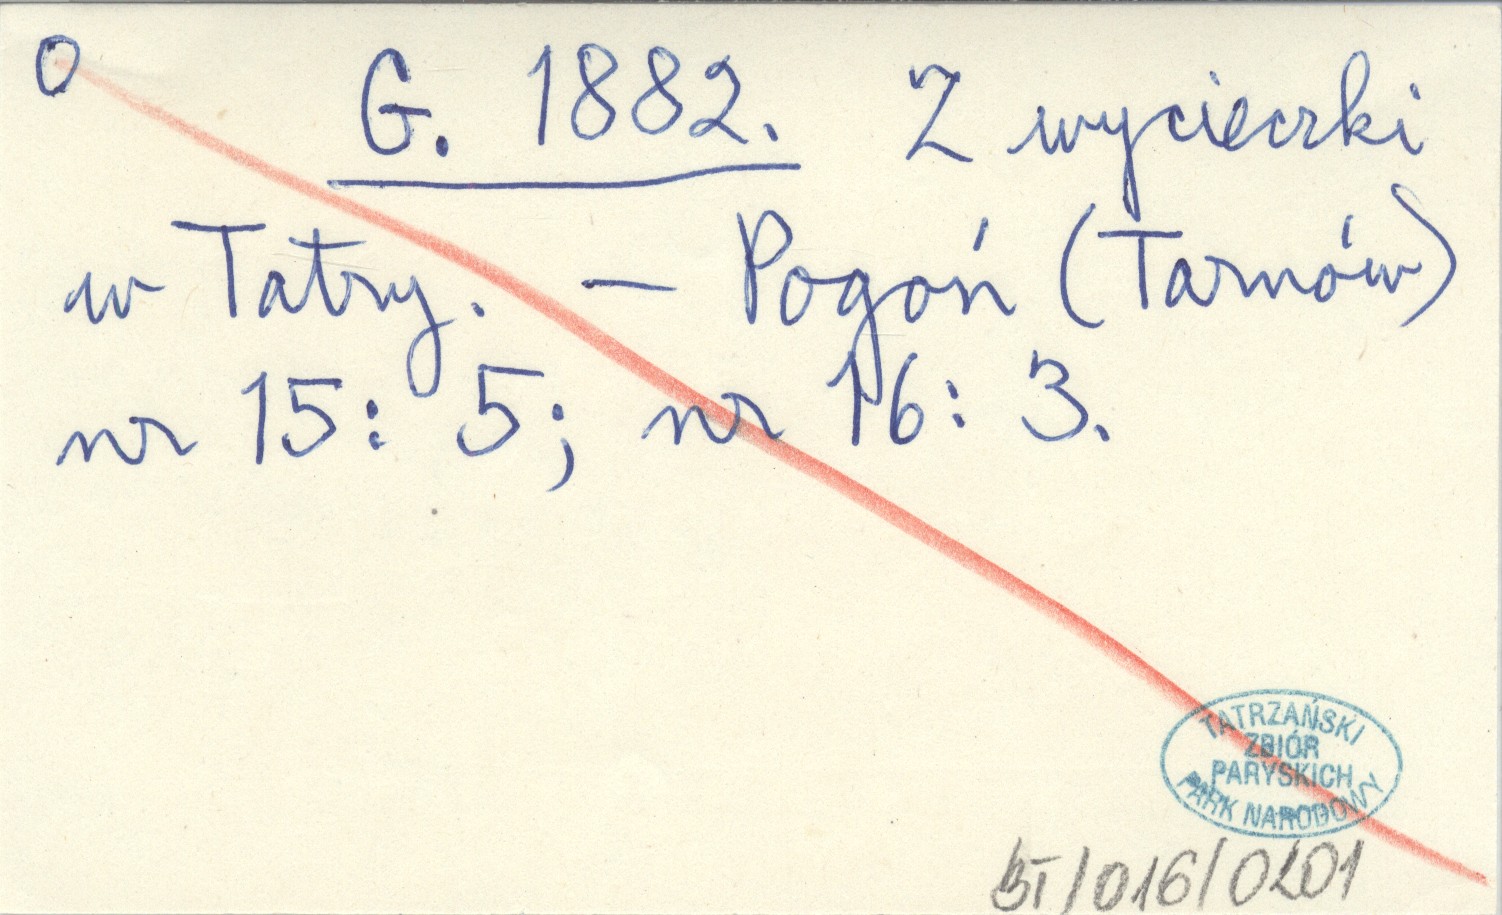 O G. 1882. Z wycieczki
w Tatry. — Pogoń (Tarnów)
nr 15: 5; nr 16: 3.
TATRZAŃSKI
ZBIÓR
PARYSKICH
PARK NARODOWY
BT/016/0201